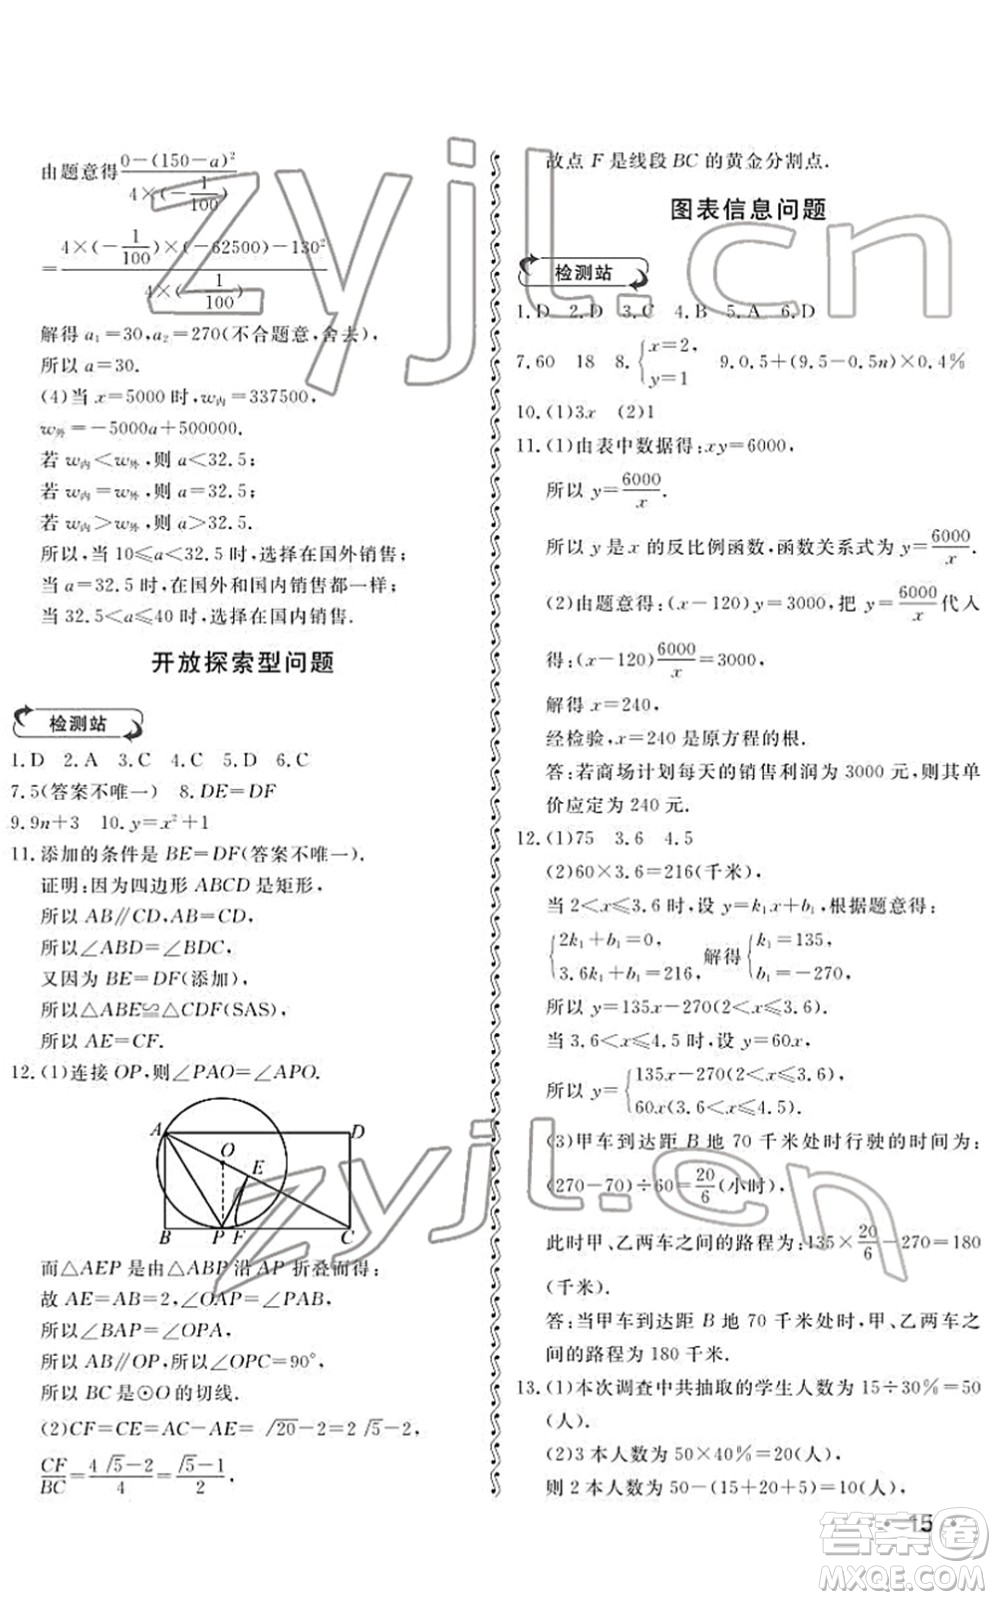 由题意得 \frac{0-(150-a)^2}{4×(-\frac{1}{100})}
= \frac{4×(-\frac{1}{100})×(-62500)-130^2}{4×(-\frac{1}{100})}
解得 a₁=30,a₂=270(不合题意,舍去).
所以 a=30.
(4)当 x=5000 时,w内=337500,
w外=-5000a+500000.
若 w内<w外,则 a<32.5;
若 w内=w外,则 a=32.5;
若 w内>w外,则 a>32.5.
所以,当 10≤a<32.5 时,选择在国外销售;
当 a=32.5 时,在国外和国内销售都一样;
当 32.5<a≤40 时,选择在国内销售.
开放探索型问题
检测站
1.D 2.A 3.C 4.C 5.D 6.C
7.5(答案不唯一) 8.DE=DF
9.9n+3 10.y=x²+1
11.添加的条件是 BE=DF(答案不唯一).
证明:因为四边形 ABCD 是矩形,
所以 AB∥CD,AB=CD,
所以∠ABD=∠BDC,
又因为 BE=DF(添加),
所以△ABE≌△CDF(SAS),
所以 AE=CF.
12.(1)连接 OP,则∠PAO=∠APO.
A D
O
E
B P F C
而△AEP 是由△ABP 沿 AP 折叠而得:
故 AE=AB=2,∠OAP=∠PAB,
所以∠BAP=∠OPA,
所以 AB∥OP,所以∠OPC=90°,
所以 BC 是⊙O 的切线.
(2)CF=CE=AC-AE=√20-2=2√5-2,
\frac{CF}{BC}=\frac{4√5-2}{4}=\frac{√5-1}{2}.
故点 F 是线段 BC 的黄金分割点.
图表信息问题
检测站
1.D 2.D 3.C 4.B 5.A 6.D
7.60 18 8.{x=2, y=1 9.0.5+(9.5-0.5n)×0.4%
10.(1)3x (2)1
11.(1)由表中数据得:xy=6000,
所以 y=\frac{6000}{x}.
所以 y 是 x 的反比例函数,函数关系式为 y=\frac{6000}{x}.
(2)由题意得:(x-120)y=3000,把 y=\frac{6000}{x}代入
得:(x-120)\frac{6000}{x}=3000,
解得 x=240,
经检验,x=240 是原方程的根.
答:若商场计划每天的销售利润为 3000 元,则其单
价应定为 240 元.
12.(1)75 3.6 4.5
(2)60×3.6=216(千米),
当 2<x≤3.6 时,设 y=k₁x+b₁,根据题意得:
{2k₁+b₁=0, 3.6k₁+b₁=216, 解得{k₁=135, b₁=-270,
所以 y=135x-270(2<x≤3.6),
当 3.6<x≤4.5 时,设 y=60x,
所以 y={135x-270(2<x≤3.6) 60x(3.6<x≤4.5).
(3)甲车到达距 B 地 70 千米处时行驶的时间为:
(270-70)÷60=\frac{20}{6}(小时),
此时甲、乙两车之间的路程为:135×\frac{20}{6}-270=180
(千米).
答:当甲车到达距 B 地 70 千米处时,甲、乙两车之
间的路程为 180 千米.
13.(1)本次调查中共抽取的学生人数为 15÷30%=50
(人).
(2)3 本人数为 50×40%=20(人),
则 2 本人数为 50-(15+20+5)=10(人),
15
zyjl.cn
zyjl.cn
答案圈
MXQE.COM